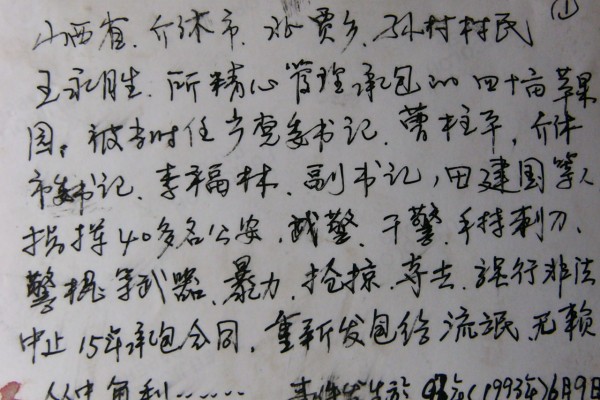 ①
山西省.介休市.北贾乡.孙村村民
王永胜.所精心管理承包的四十亩苹果
园。被当时任乡党委书记.曹柱平,介休
市委书记.李福林.副书记,田建国等人
指挥40多名公安.武警.干警.手持刺刀、
警棍等武器、暴力.抢掠.夺去.强行非法
中止15年承包合同.重新发包给流氓.无赖
从中负利……事件发生于93年(1993年)6月9日